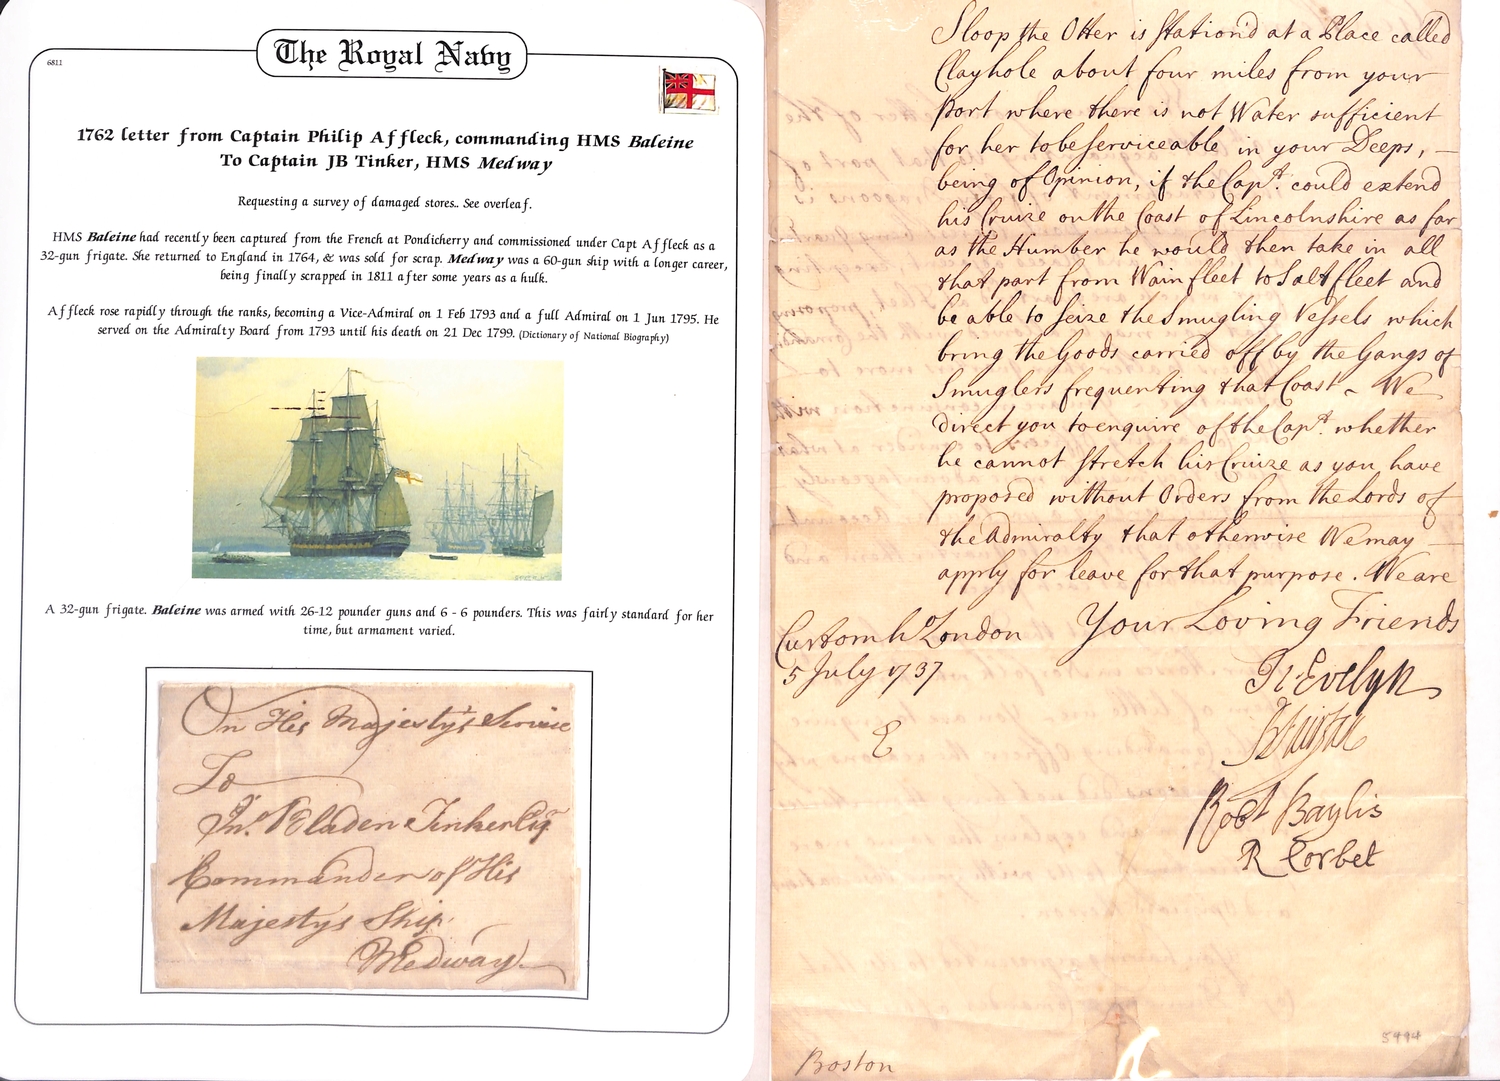 6811
The Royal Navy
1762 letter from Captain Philip Affleck, commanding HMS Baleine
To Captain JB Tinker, HMS Medway
Requesting a survey of damaged stores.. See overleaf.
HMS Baleine had recently been captured from the French at Pondicherry and commissioned under Capt Affleck as a
32-gun frigate. She returned to England in 1764, & was sold for scrap. Medway was a 60-gun ship with a longer career,
being finally scrapped in 1811 after some years as a hulk.
Affleck rose rapidly through the ranks, becoming a Vice-Admiral on 1 Feb 1793 and a full Admiral on 1 Jun 1795. He
served on the Admiralty Board from 1793 until his death on 21 Dec 1799. (Dictionary of National Biography)
A 32-gun frigate. Baleine was armed with 26-12 pounder guns and 6 - 6 pounders. This was fairly standard for her
time, but armament varied.
On His Majesty's Service
To
Jno. Bladen Tinker Esqr
Commander of His
Majestys Ship
Medway
Sloop the Otter is Station'd at a Place called
Clayhole about four miles from your
Port where there is not Water sufficient
for her to be Serviceable in your Deeps, —
being of Opinion, if the Capt. could extend
his Cruize on the Coast of Lincolnshire as far
as the Humber he would then take in all
that part from Wainfleet to Saltfleet and
be able to Seize the Smugling Vessels which
bring the Goods carried off by the Gangs of
Smuglers frequenting that Coast ~ We
direct you to enquire of the Capt. whether
he cannot Stretch his Cruize as you have
proposed without Orders from the Lords of
the Admiralty that otherwise We may —
apply for leave for that purpose. We are
Your Loving Friends
Customho. London
5 July 1737
Jn. Evelyn
E
Robt Baylis
R Corbet
5494
Boston